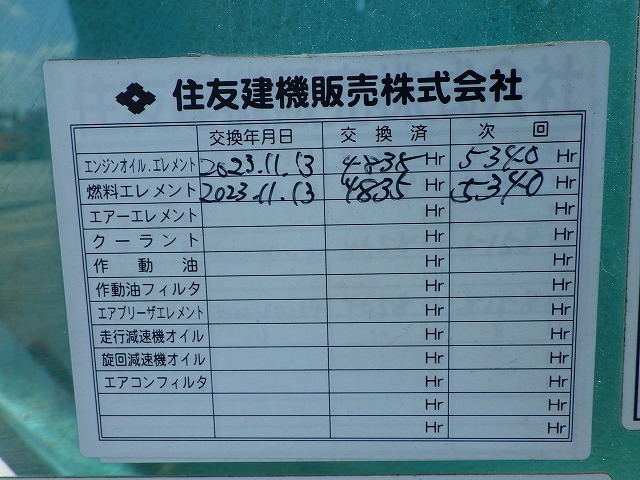 住友建機販売株式会社
交換年月日 交換済 次回
エンジンオイル.エレメント 2023.11.13 4835 Hr 5340 Hr
燃料エレメント 2023.11.13 4835 Hr 5340 Hr
エアーエレメント Hr Hr
クーラント Hr Hr
作動油 Hr Hr
作動油フィルタ Hr Hr
エアブリーザエレメント Hr Hr
走行減速機オイル Hr Hr
旋回減速機オイル Hr Hr
エアコンフィルタ Hr Hr
Hr Hr
Hr Hr